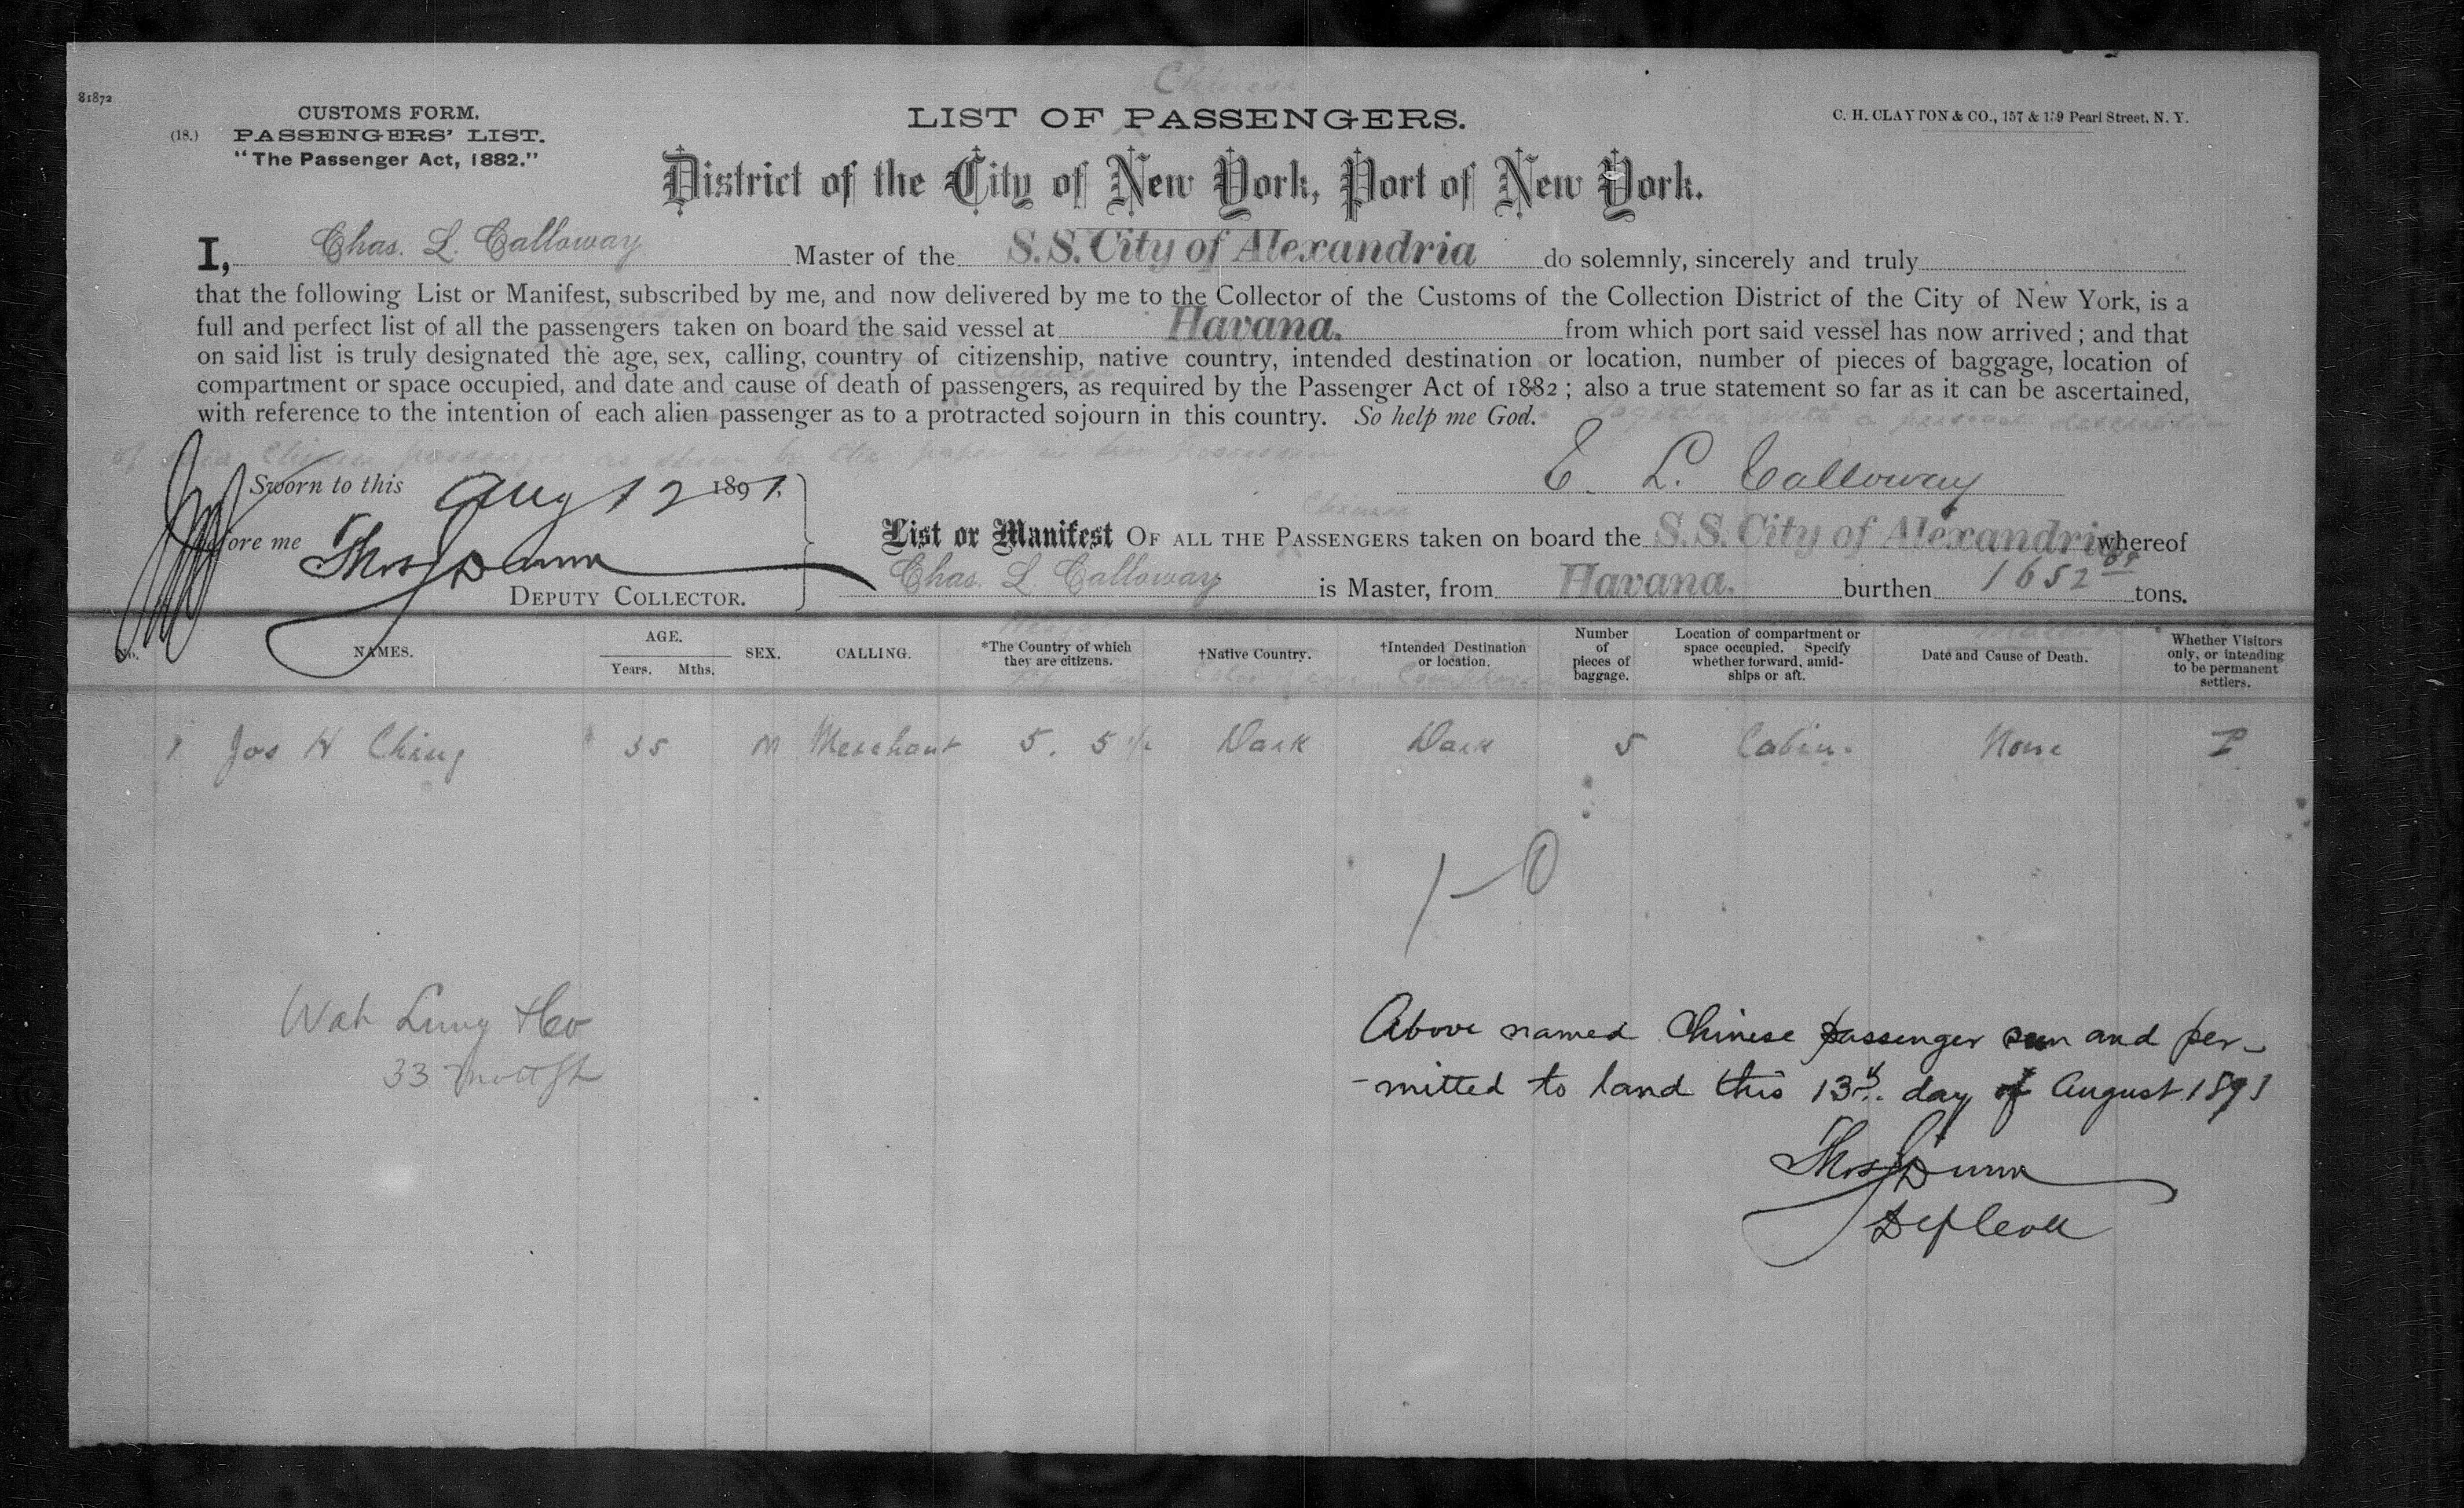 Chinese
81872
CUSTOMS FORM.
(18.) PASSENGERS' LIST.
"The Passenger Act, 1882."
LIST OF PASSENGERS.
C. H. CLAYTON & CO., 157 & 159 Pearl Street, N. Y.
District of the City of New York, Port of New York.
I, Chas. L. Calloway Master of the S.S. City of Alexandria do solemnly, sincerely and truly
that the following List or Manifest, subscribed by me, and now delivered by me to the Collector of the Customs of the Collection District of the City of New York, is a
full and perfect list of all the passengers taken on board the said vessel at Havana. from which port said vessel has now arrived; and that
on said list is truly designated the age, sex, calling, country of citizenship, native country, intended destination or location, number of pieces of baggage, location of
compartment or space occupied, and date and cause of death of passengers, as required by the Passenger Act of 1882; also a true statement so far as it can be ascertained,
with reference to the intention of each alien passenger as to a protracted sojourn in this country. So help me God. together with a personal description
of said Chinese passenger as shown by the papers in his possession
Sworn to this Aug 12 1891.
before me Thos Dunn
DEPUTY COLLECTOR.
C. L. Calloway
Chinese
List or Manifest OF ALL THE PASSENGERS taken on board the S.S. City of Alexandria, whereof
Chas. L. Calloway is Master, from Havana. burthen 1652 tons.
No. NAMES. AGE. Years. Mths. SEX. CALLING. *The Country of which they are citizens. †Native Country. †Intended Destination or location. Number of pieces of baggage. Location of compartment or space occupied. Specify whether forward, amidships or aft. Date and Cause of Death. Whether Visitors only, or intending to be permanent settlers.
1 Jos H Ching 35 M Merchant 5. 5 1/2 Dark Dark 5 Cabin. None P
1-0
Wah Lung & Co
33 Mott St
Above named Chinese passenger seen and per-
-mitted to land this 13th. day of August 1891
Thos Dunn
Dep Coll